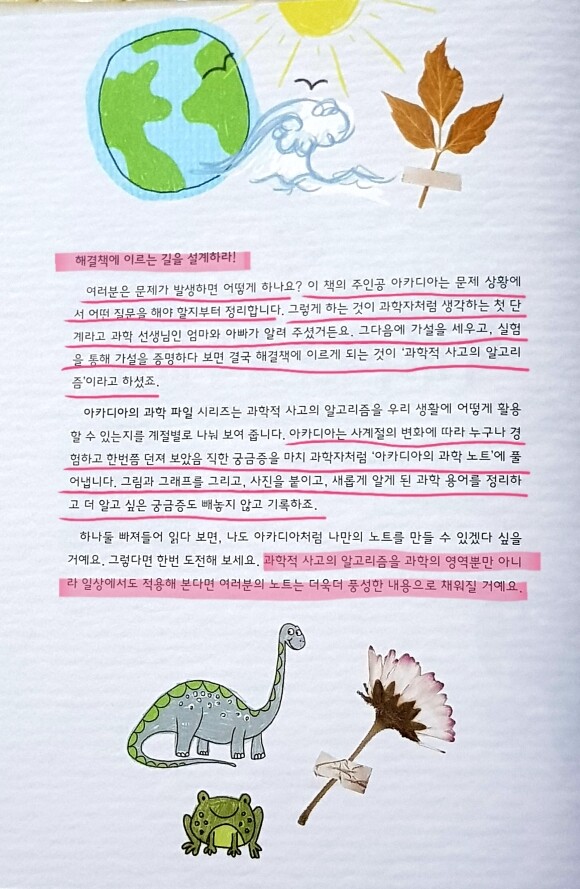 해결책에 이르는 길을 설계하라!
여러분은 문제가 발생하면 어떻게 하나요? 이 책의 주인공 아카디아는 문제 상황에
서 어떤 질문을 해야 할지부터 정리합니다. 그렇게 하는 것이 과학자처럼 생각하는 첫 단
계라고 과학 선생님인 엄마와 아빠가 알려 주셨거든요. 그다음에 가설을 세우고, 실험
을 통해 가설을 증명하다 보면 결국 해결책에 이르게 되는 것이 '과학적 사고의 알고리
즘'이라고 하셨죠.
아카디아의 과학 파일 시리즈는 과학적 사고의 알고리즘을 우리 생활에 어떻게 활용
할 수 있는지를 계절별로 나눠 보여 줍니다. 아카디아는 사계절의 변화에 따라 누구나 경
험하고 한번쯤 던져 보았음 직한 궁금증을 마치 과학자처럼 '아카디아의 과학 노트'에 풀
어냅니다. 그림과 그래프를 그리고, 사진을 붙이고, 새롭게 알게 된 과학 용어를 정리하
고 더 알고 싶은 궁금증도 빼놓지 않고 기록하죠.
하나둘 빠져들어 읽다 보면, 나도 아카디아처럼 나만의 노트를 만들 수 있겠다 싶을
거예요. 그렇다면 한번 도전해 보세요. 과학적 사고의 알고리즘을 과학의 영역뿐만 아니
라 일상에서도 적용해 본다면 여러분의 노트는 더욱더 풍성한 내용으로 채워질 거예요.